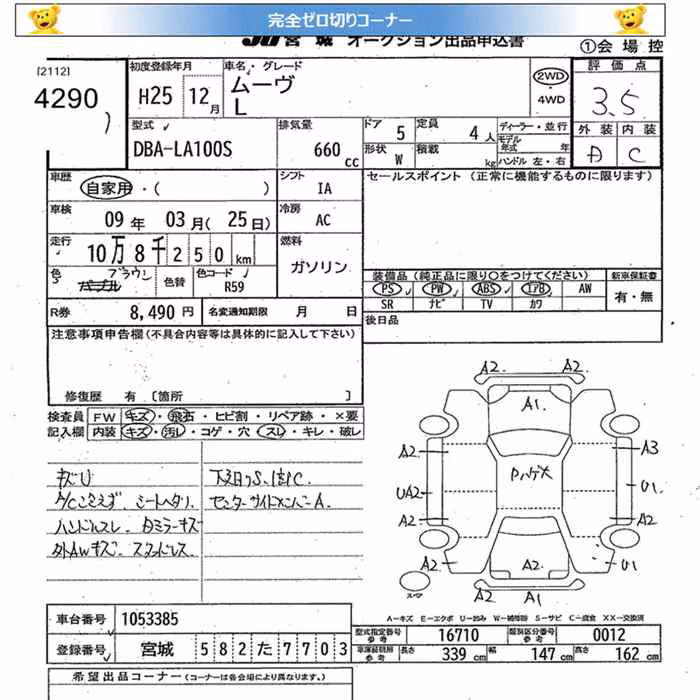 完全ゼロ切りコーナー
JU 宮 城 オークション出品申込書
①会 場 控
[2112]
4290
初度登録年月
H25 12月
車名・グレード
ムーヴ
L
2WD
4WD
評 価 点
3.5
外 装 内 装
A C
型式
DBA-LA100S
排気量
660 cc
ドア 5
定員 4人
形状 W
積載 kg
ディーラー・並行
モデル年式 年
ハンドル 左・右
車歴
自家用・( )
シフト
IA
セールスポイント (正常に機能するものに限ります)
車検
09 年 03 月( 25 日)
冷房
AC
走行
10万 8千 2 5 0 km
燃料
ガソリン
色 ブラウン
パープル
色替
色コード
R59
装備品(純正品に限り○をつけてください)
新車保証書
PS PW ABS エアB AW
SR ナビ TV カワ
有・無
R券 8,490 円
名変通知期限 月 日
後日品
注意事項申告欄(不具合内容等は具体的に記入して下さい)
修復歴 有 [箇所 ]
検査員
記入欄
FW キズ・飛石・ヒビ割・リペア跡・×要
内装 キズ・汚レ・コゲ・穴・スレ・キレ・破レ
キズU
シートヘタリ
ハンドルスレ
ミラーキズ
外AWキズ
センターサイドメンバーA
A2 A2
A1
A2 A3
UA2 U1
A2 A2
A2 A2 U1
A2 A1
A-キズ E-エクボ U-凹み W-補修跡 S-サビ C-腐食 XX-交換済
車台番号 1053385
登録番号 宮城 5 8 2 た 7 7 0 3
型式指定番号 参考 16710
類別区分番号 参考 0012
車庫証明用 参考 長さ 339 cm 幅 147 cm 高さ 162 cm
希望出品コーナー (コーナーは各会場により異なります。)